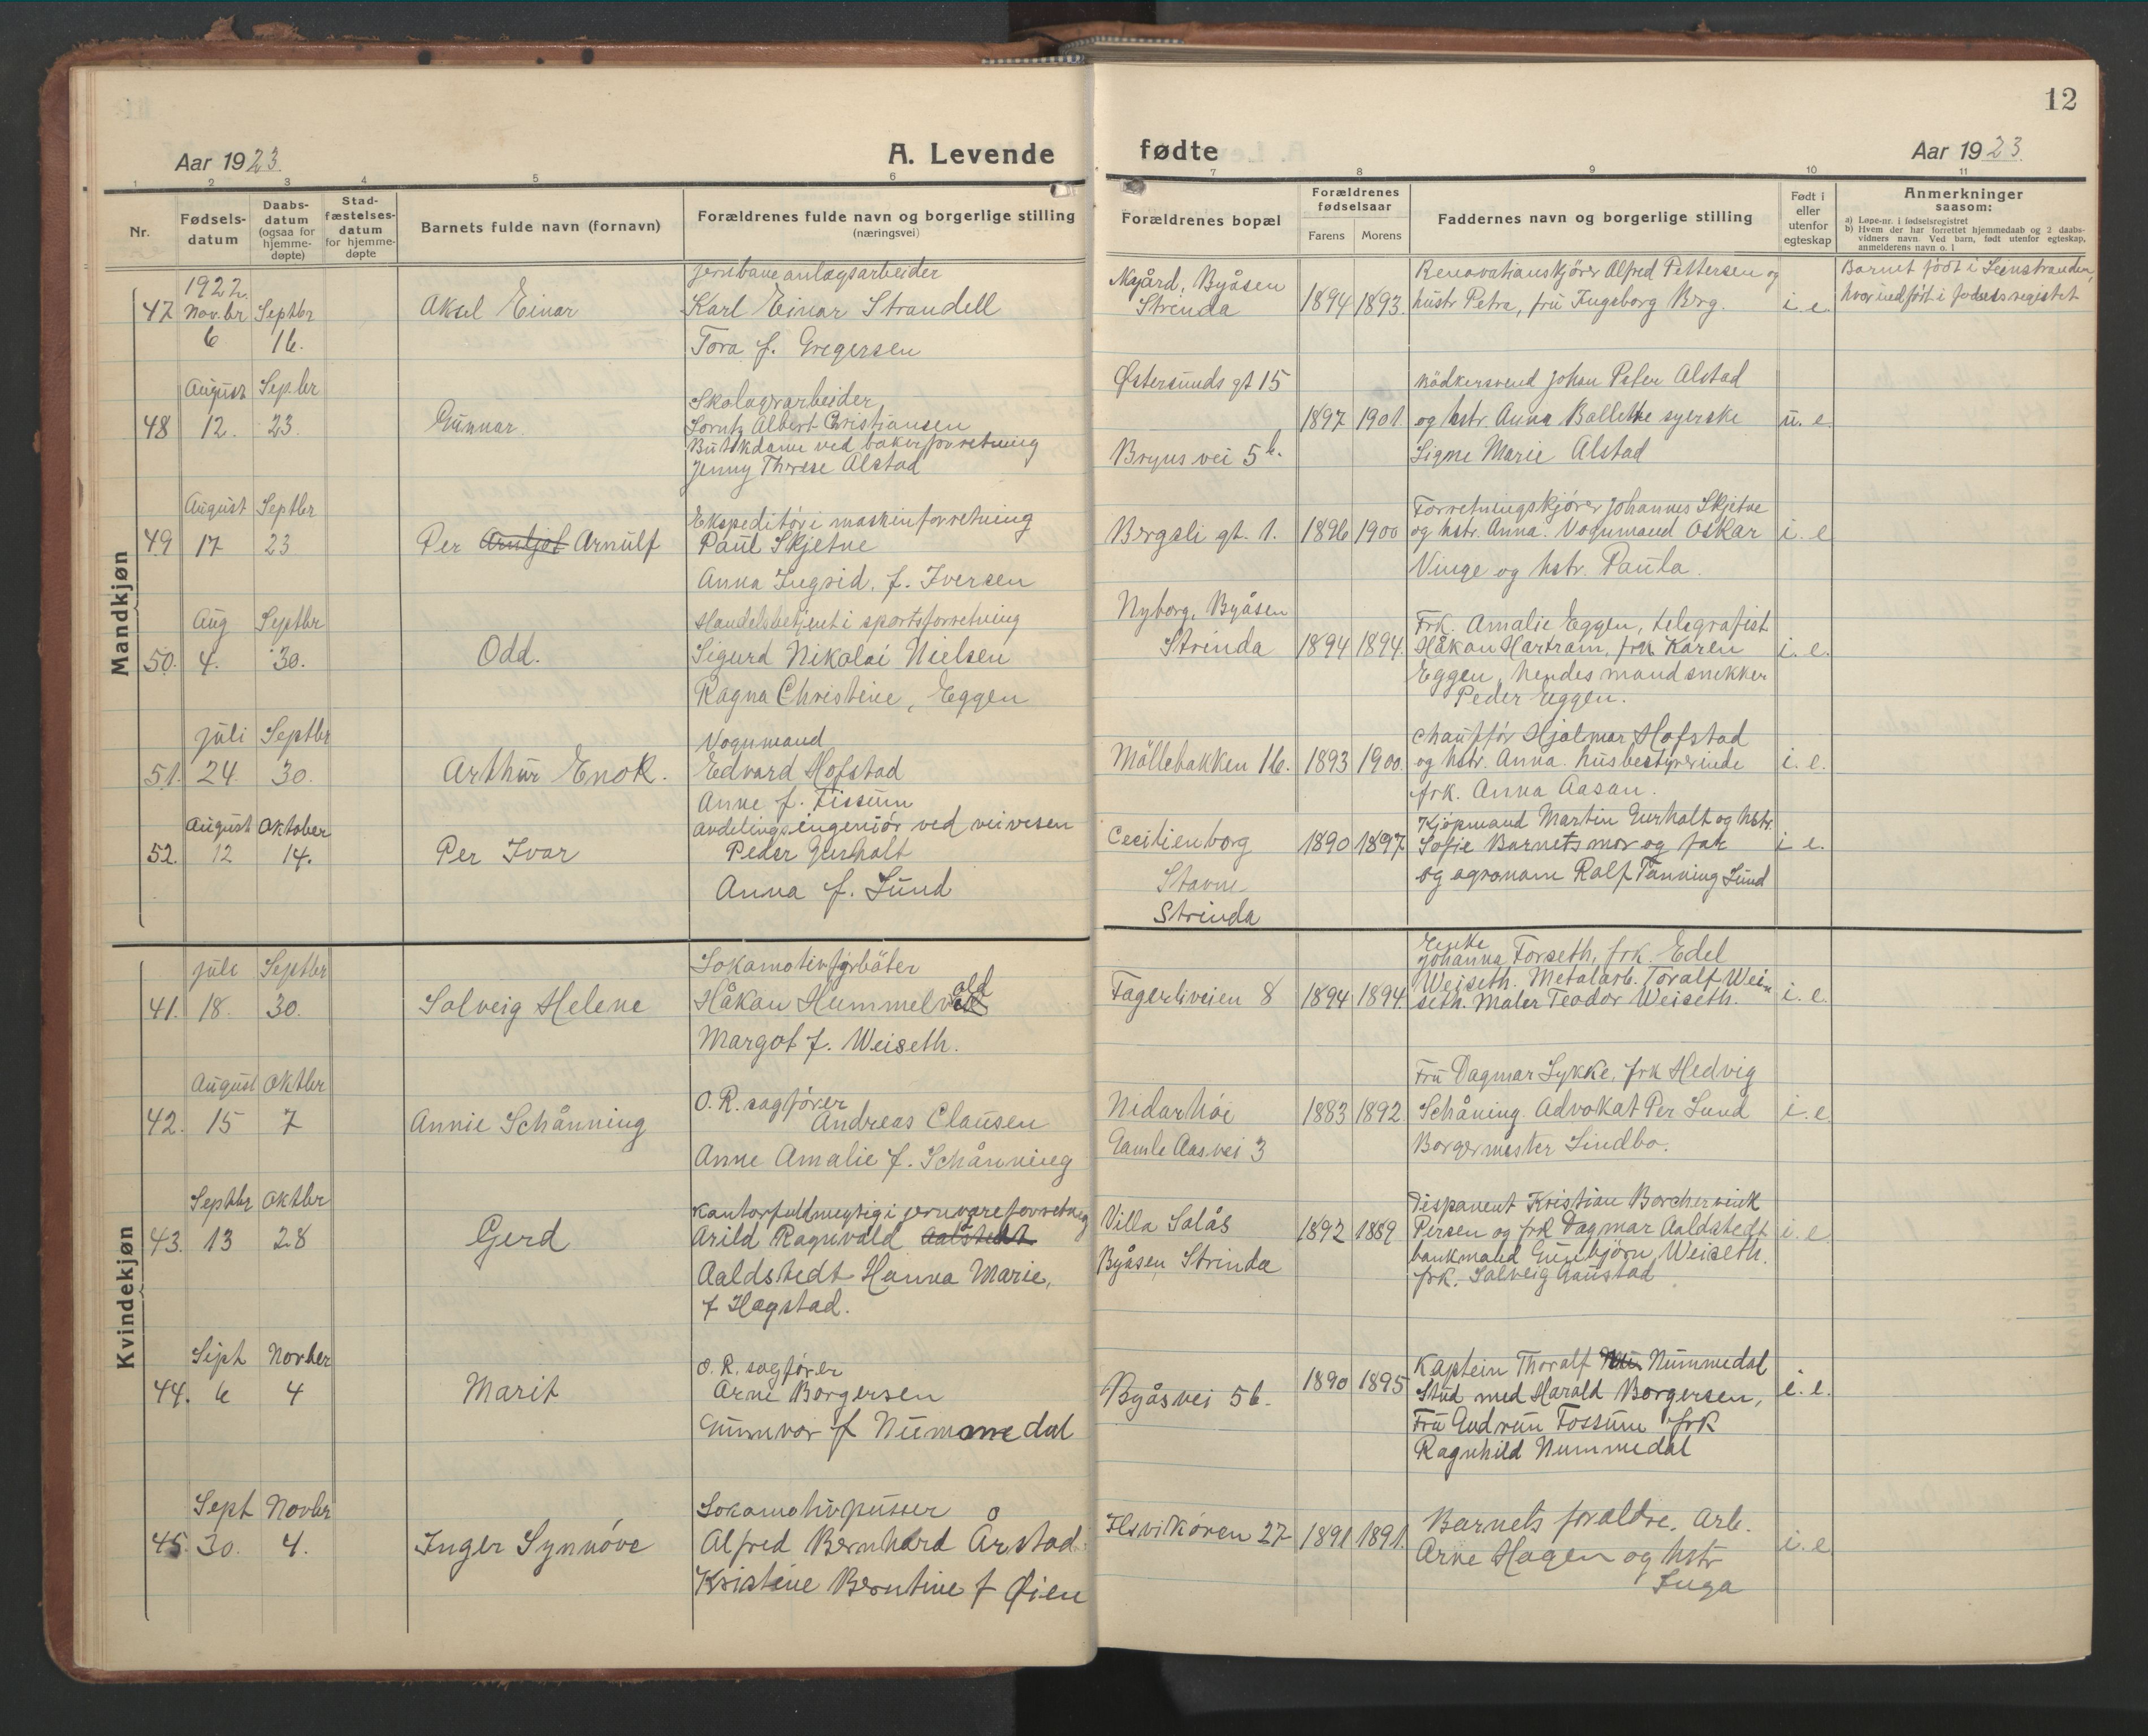 12
Aar 1923.
A. Levende
fødte
Aar 1923.
1 2 3 4 5 6 7 8 9 10 11
Nr.
Fødsels-
datum
Daabs-
datum
(ogsaa for
hjemme-
døpte)
Stad-
fæstelses-
datum
for hjemme-
døpte
Barnets fulde navn (fornavn)
Forældrenes fulde navn og borgerlige stilling
(næringsvei)
Forældrenes bopæl
Forældrenes
fødselsaar
Farens Morens
Faddernes navn og borgerlige stilling
Født i
eller
utenfor
egteskap
Anmerkninger
saasom:
a) Løpe-nr. i fødselsregistret
b) Hvem der har forrettet hjemmedaab og 2 daabs-
vidners navn. Ved barn, født utenfor egteskap,
anmelderens navn o. l
Mandkjøn
1922.
47 Novbr 6 Septbr 16.
Aksel Einar
Jernbaneanlægsarbeider
Karl Einar Strandell
Tora f. Gregersen
Nygård, Byåsen
Strinda
1894 1893.
Renovationskjører Alfred Pettersen og
hustr Petra, fru Ingeborg Berg.
i. e.
Barnet født i Leinstranden,
hvor indført i fødselsregistret
48 August 12. Sepbr 23.
Gunnar
Skolagerarbeider
Lorntz Albert Christiansen
Butikdame ved bakerforretning
Jenny Therese Alstad
Østersunds gt 15
Bryns vei 5b.
1897 1901.
Bödkersvend Johan Peter Alstad
og hstr. Anna Ballette syerske
Signe Marie Alstad
u. e.
49 August 17 Septbr 23
Per Arnljot Arnulf
Ekspeditör i maskinforretning
Paul Skjetne
Anna Ingrid. f. Iversen
Bergsli gt. 1.
1896 1900
Forretningskjører Johannes Skjetne
og hstr. Anna. Vognmand Oskar
Vinge og hstr. Paula.
i. e
50. Aug 4. Septbr 30.
Odd.
Handelsbetjent i sportsforretning
Sigurd Nikolai Nielsen
Ragna Christine, Eggen
Nyborg, Byåsen
Strinda
1894 1894.
Frk. Amalie Eggen, telegrafist
Håkon Hartram, frk Karen
Eggen, hendes mand snekker
Peder Eggen.
i. e.
51. Juli 24. Septbr 30.
Arthur Enok.
Vognmand
Edvard Hofstad
Anne f. Tissum
Möllebakken 16.
1893 1900.
Chauffør Hjalmar Hofstad
og hstr. Anna. husbestyrerinde
frk. Anna Aasan.
i. e.
52. August 12 Oktober 14.
Per Ivar
avdelingsingeniör ved veivesen
Peder Gurholt
Anna f. Lund
Cecilienborg
Stavne
Strinda
1890 1897
Kjöpmand Martin Gurholt og hstr.
Sofie Barnets mor og far
og agronom Ralf Tanning Lund
i e.
Kvindekjøn
41. Juli 18. Septbr 30.
Solveig Helene
Lokomotivfyrböter
Håkon Hummelvold
Margot f. Weiseth.
Fagerliveien 8
1894 1894.
Enke
Johanna Forseth, frk. Edel
Weiseth. Metalarb. Toralf Wei-
seth. Maler Teodor Weiseth.
i. e.
42. August 15 Oktbr 7
Annie Schånning
O. R. sagfører
Andreas Clausen
Anne Amalie f. Schånning
Nidarhöi
Gamle Aasvei 3
1883 1892.
Fru Dagmar Lykke, frk Hedvig
Schåning. Advokat Per Lund
Borgermester Lindbo.
i. e.
43. Septbr 13 Oktbr 28
Gerd
Kontorfuldmegtig i jernvareforretning
Arild Ragnvald Aalstedt
Aaldstedt Hanna Marie,
f Hagstad.
Villa Solås
Byåsen Strinda
1892 1889
Disponent Kristian Borchervink
Persen og frk Dagmar Aaldstedt
bankmand Gunbjörn Weiseth.
frk. Solveig Gaustad
i. e.
44. Sept 6 Novber 4
Marit
O. R. sagfører
Arne Borgersen
Gunnvor f Nummedal
Byåsvei 56.
1890 1895
Kaptein Thoralf Nummedal
Stud med Harald Borgersen,
Fru Gudrun Fossum frk
Ragnhild Nummedal
i. e.
45. Sept 30. Novbr 4.
Inger Synnöve
Lokomotivpusser
Alfred Bernhard Årstad
Kristine Berntine f Øien
Ilsvikören 27
1891 1891.
Barnets foraldre. Arb.
Arne Hagen og hstr
Inga
i. e